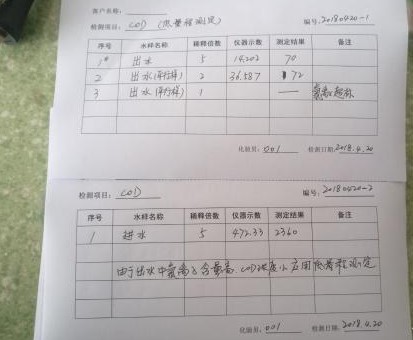 客户名称:
检测项目: COD (低量程测定) 编号: 20180420-1
序号 水样名称 稀释倍数 仪器示数 测定结果 备注
1# 出水 5 14.202 70
2 出水(平行样) 2 36.587 72
3 出水(平行样) 1 — 氯离超标
化验员: 001 检测日期: 2018.4.20
检测项目: COD 编号: 20180420-2
序号 水样名称 稀释倍数 仪器示数 测定结果 备注
1 进水 5 472.33 2360
由于出水中氯离子含量高, COD浓度小 应用低量程测定
化验员: 001 检测日期: 2018.4.20